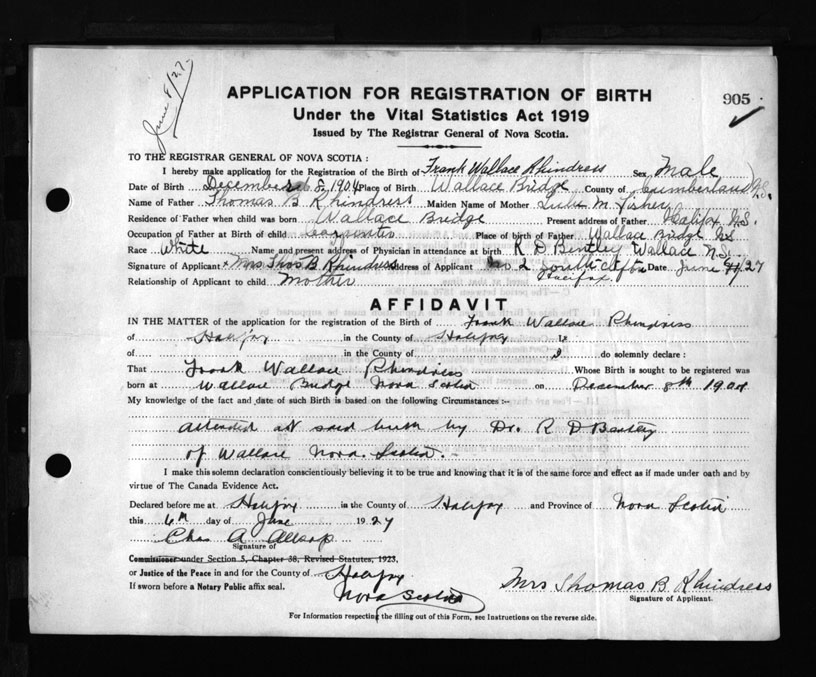 June 8/27
APPLICATION FOR REGISTRATION OF BIRTH
905
Under the Vital Statistics Act 1919
Issued by The Registrar General of Nova Scotia.
TO THE REGISTRAR GENERAL OF NOVA SCOTIA :
I hereby make application for the Registration of the Birth of Frank Wallace Rhindress Sex Male
Date of Birth December 8 1904 Place of Birth Wallace Bridge County of Cumberland N.S.
Name of Father Thomas B Rhindress Maiden Name of Mother M. Fisher
Residence of Father when child was born Wallace Bridge Present address of Father Halifax N.S.
Occupation of Father at Birth of child carpenter Place of birth of Father Wallace Bridge NS
Race White Name and present address of Physician in attendance at birth R D Bentley Wallace N.S.
Signature of Applicant Mrs Thos B Rhindress Address of Applicant 2 South Halifax. Date June /27
Relationship of Applicant to child Mother
AFFIDAVIT
IN THE MATTER of the application for the registration of the Birth of Frank Wallace Rhindress
of Halifax in the County of Halifax
of in the County of do solemnly declare :
That Frank Wallace Rhindress Whose Birth is sought to be registered was
born at Wallace Bridge Nova Scotia on December 8th 1904
My knowledge of the fact and date of such Birth is based on the following Circumstances :-
attended at said birth by Dr. R D Bentley
of Wallace Nova Scotia.
I make this solemn declaration conscientiously believing it to be true and knowing that it is of the same force and effect as if made under oath and by
virtue of The Canada Evidence Act.
Declared before me at Halifax in the County of Halifax and Province of Nova Scotia
this 6th day of June 1927
Chas A Allsop
Signature of
Commissioner under Section 5, Chapter 38, Revised Statutes, 1923,
or Justice of the Peace in and for the County of Halifax
If sworn before a Notary Public affix seal. Nova Scotia
Mrs Thomas B Rhindress
Signature of Applicant.
For Information respecting the filling out of this Form, see Instructions on the reverse side.